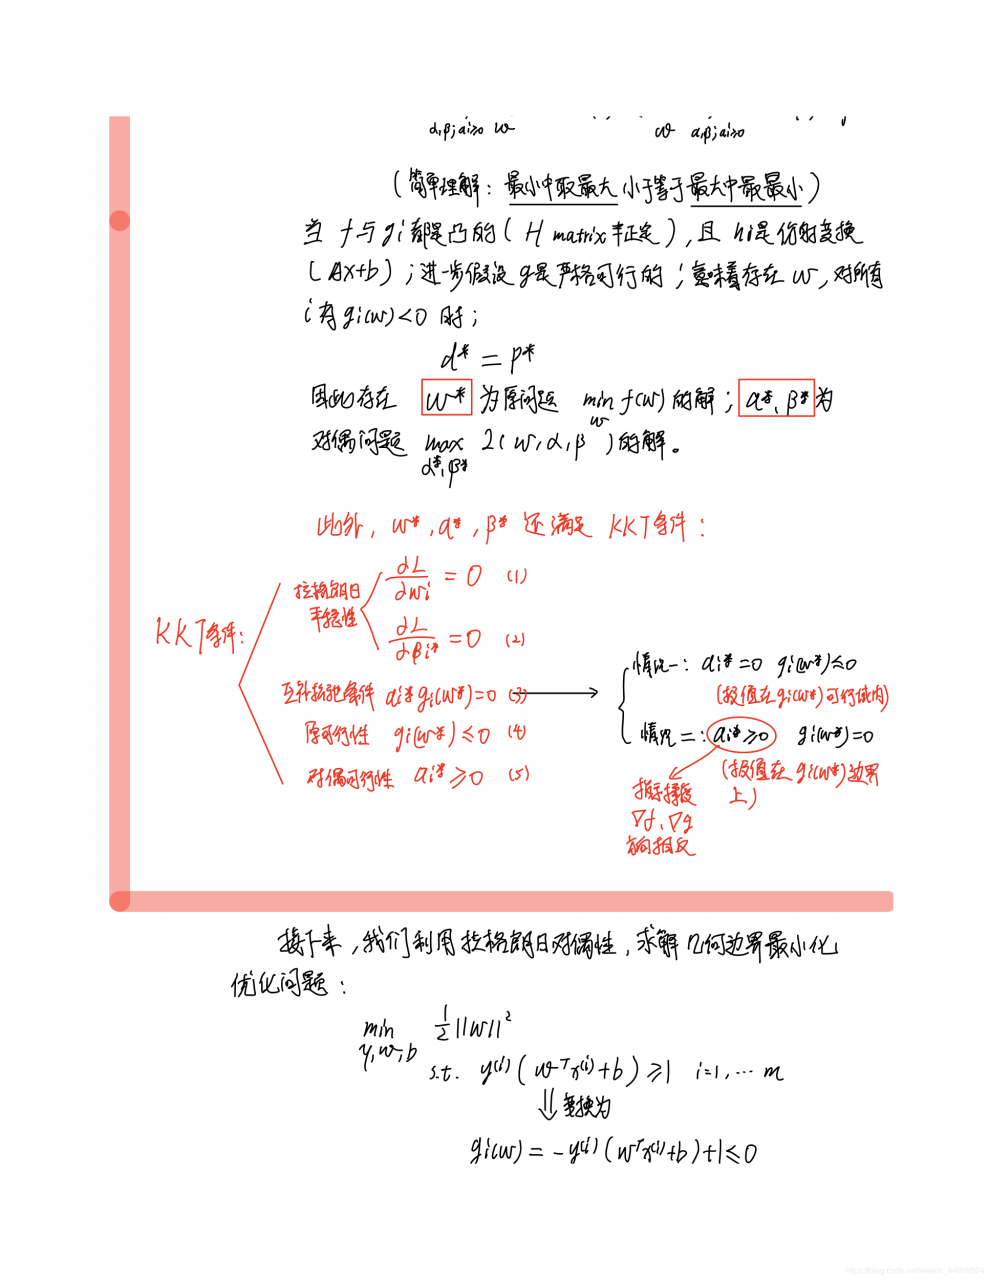 α,β;αi≥0 w w α,β;αi≥0
(简单理解：最小中取最大 小于等于 最大中最最小)
当 f 与 gi 都是凸的 ( H matrix 半正定 ) , 且 hi 是仿射变换
( Ax+b ) ; 进一步假设 g 是严格可行的 ; 意味着存在 w , 对所有
i 有 gi(w) < 0 时 ;
d* = p*
因此存在 w* 为原问题 min f(w) 的解 ; α*、β* 为
w
对偶问题 max L( w, α, β ) 的解。
α*, β*
此外, w*, α*, β* 还满足 KKT条件:
KKT条件:
拉格朗日
平稳性
∂L/∂wi = 0 (1)
∂L/∂βi* = 0 (2)
互补松弛条件 αi* gi(w*) = 0 (3)
原可行性 gi(w*) ≤ 0 (4)
对偶可行性 αi* ≥ 0 (5)
情况一: αi* = 0 gi(w*) ≤ 0
(极值在 gi(w*) 可行域内)
情况二: αi* ≥ 0 gi(w*) = 0
(极值在 gi(w*) 边界
上)
指示梯度
∇f、∇g
方向相反
接下来, 我们利用拉格朗日对偶性, 求解几何边界最小化
优化问题:
min 1/2 ||w||²
γ,w,b
s.t. y⁽ⁱ⁾ ( wᵀx⁽ⁱ⁾ + b ) ≥ 1 i=1, ... m
⇓ 变换为
gi(w) = -y⁽ⁱ⁾ ( wᵀx⁽ⁱ⁾ + b ) + 1 ≤ 0